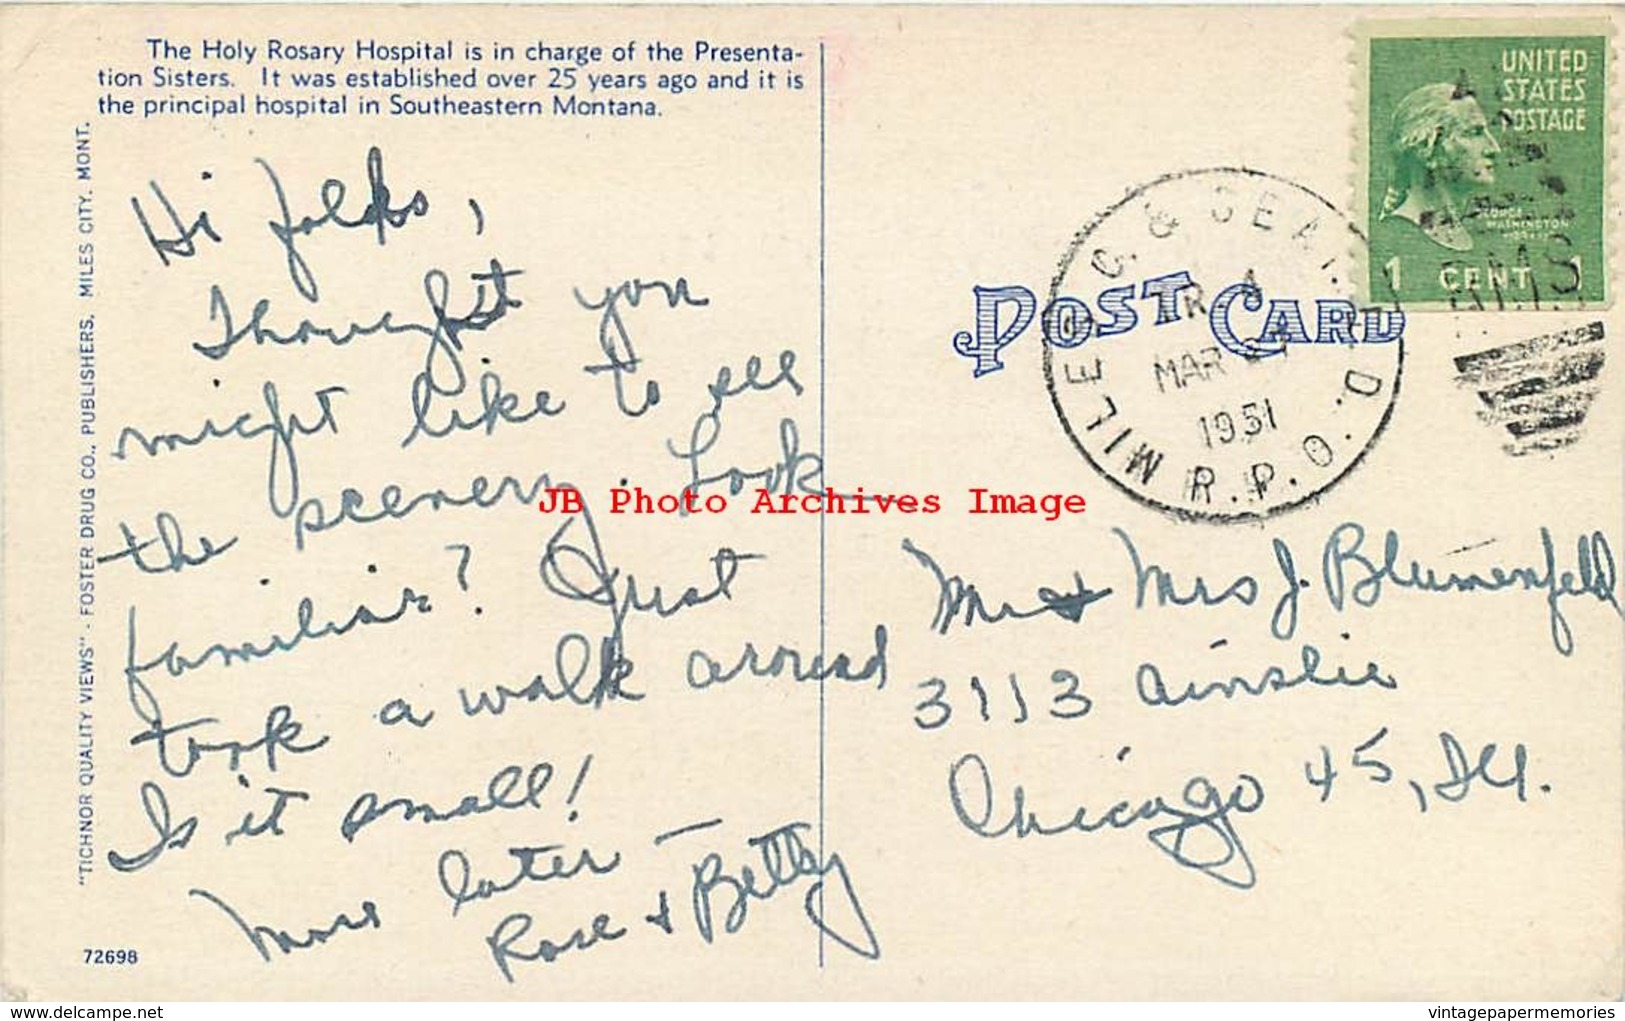 The Holy Rosary Hospital is in charge of the Presenta-
tion Sisters. It was established over 25 years ago and it is
the principal hospital in Southeastern Montana.
"TICHNOR QUALITY VIEWS" - FOSTER DRUG CO., PUBLISHERS, MILES CITY, MONT.
Hi folks,
Thought you
might like to see
the scenery. Look
familiar? Just
took a walk around
Is it small!
More later —
Rose & Betty
72698
POST CARD
UNITED
STATES
POSTAGE
GEORGE
WASHINGTON
1 CENT 1
MILES C. & SEAT. R.P.O.
TR 4
MAR
1951
RMS
Mr & Mrs J. Blumenfeld
3113 Ainslie
Chicago 45, Ill.
JB Photo Archives Image
delcampe.net
vintagepapermemories